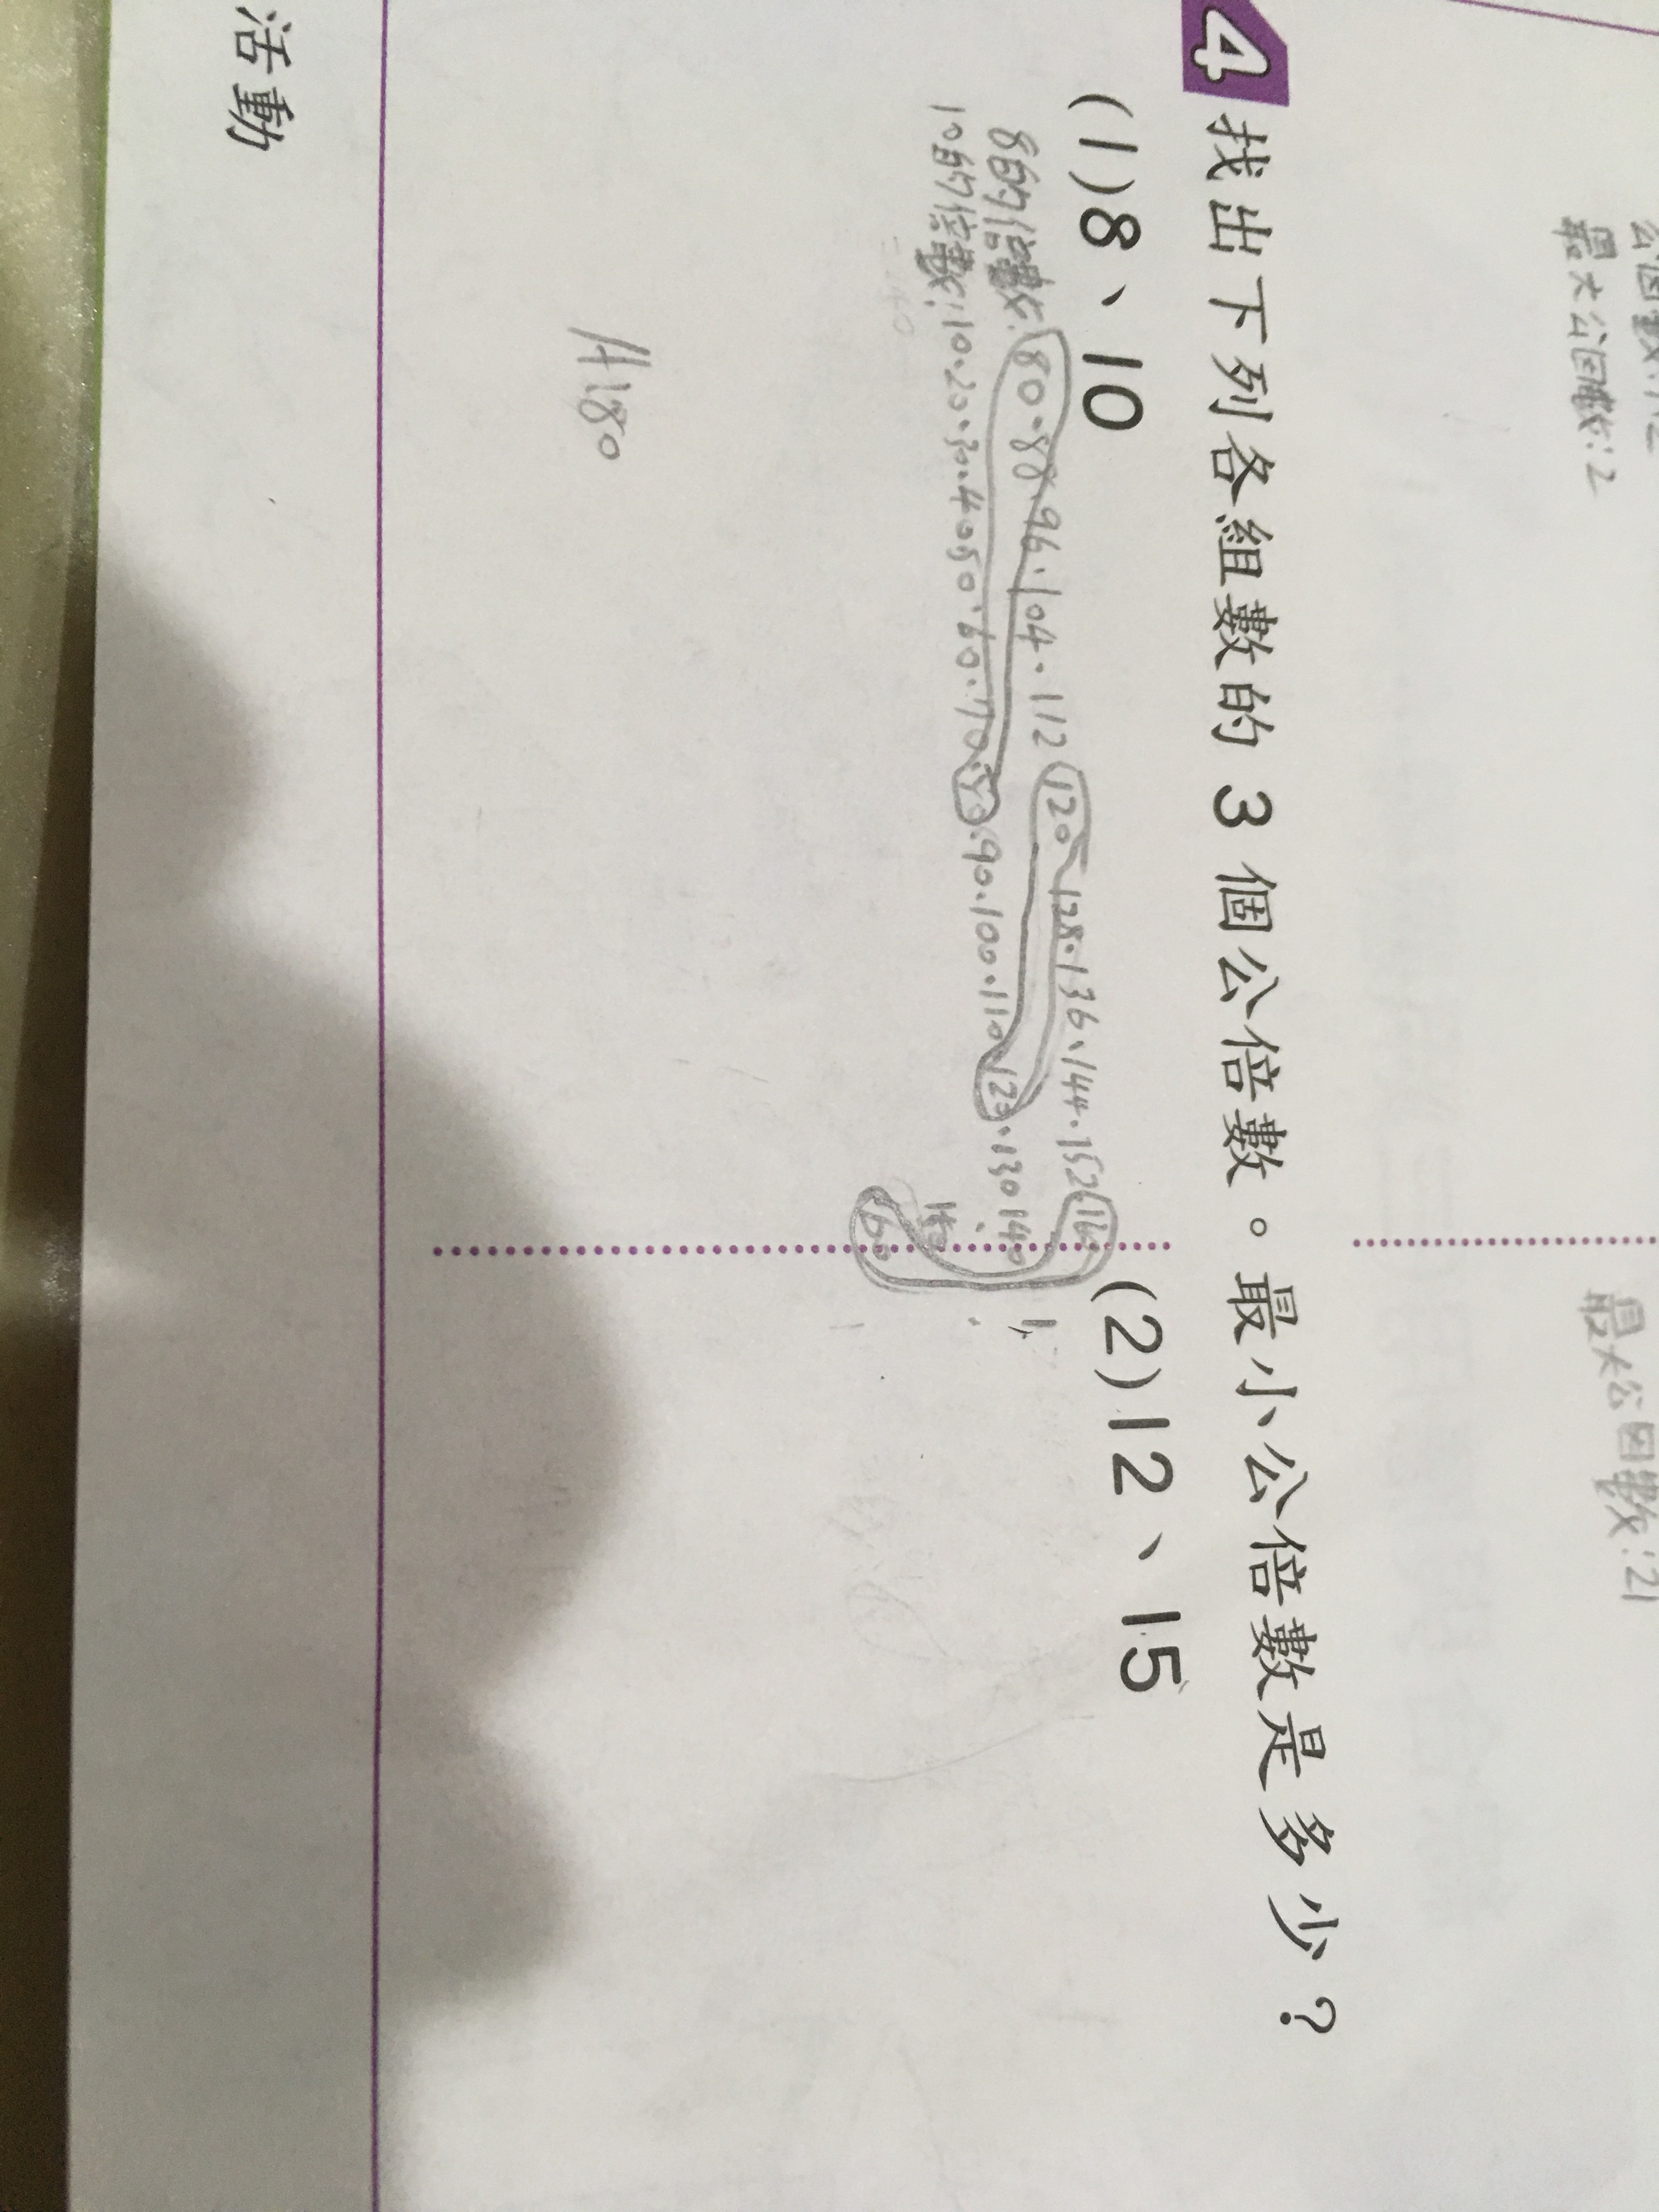 最大公因數:2
最大公因數:21
4 找出下列各組數的 3 個公倍數。最小公倍數是多少?
(1)8、10
8的倍數:80.88.96.104.112 120 128.136、144.152 160
10的倍數:10.20.30.40 50.60.70. .90.100.110 120.130 140
150
160
A:80
(2)12、15
活動